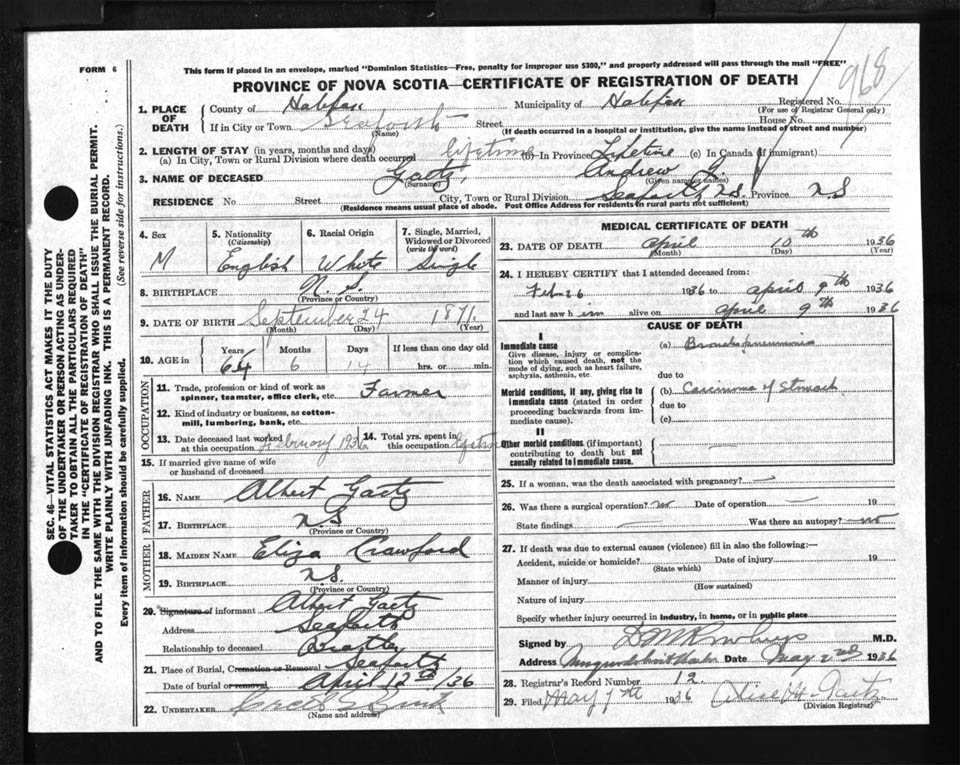 FORM 6
This form if placed in an envelope, marked "Dominion Statistics—Free, penalty for improper use $300," and properly addressed will pass through the mail "FREE"
PROVINCE OF NOVA SCOTIA—CERTIFICATE OF REGISTRATION OF DEATH
968
SEC. 46—VITAL STATISTICS ACT MAKES IT THE DUTY
OF THE UNDERTAKER OR PERSON ACTING AS UNDER-
TAKER TO OBTAIN ALL THE PARTICULARS REQUIRED
IN THE "CERTIFICATE OF REGISTRATION OF DEATH"
AND TO FILE THE SAME WITH THE DIVISION REGISTRAR WHO SHALL ISSUE THE BURIAL PERMIT.
WRITE PLAINLY WITH UNFADING INK. THIS IS A PERMANENT RECORD.
Every item of information should be carefully supplied. (See reverse side for instructions.)
1. PLACE OF DEATH
County of Halifax Municipality of Halifax Registered No.
(For use of Registrar General only)
If in City or Town Seaforth Street House No.
(Name) (If death occurred in a hospital or institution, give the name instead of street and number)
2. LENGTH OF STAY (in years, months and days)
(a) In City, Town or Rural Division where death occurred lifetime (b) In Province Lifetime (c) In Canada (if immigrant)
3. NAME OF DECEASED Gaetz, Andrew
(Surname) (Given name or names)
RESIDENCE No Street City, Town or Rural Division Seaforth N.S. Province N.S
(Residence means usual place of abode. Post Office Address for residents in rural parts not sufficient)
4. Sex
M
5. Nationality
(Citizenship)
English
6. Racial Origin
White
7. Single, Married,
Widowed or Divorced
(write the word)
Single
8. BIRTHPLACE N. S.
(Province or Country)
9. DATE OF BIRTH September 24 1871.
(Month) (Day) (Year)
10. AGE in
Years Months Days If less than one day old
64 6 14 hrs. or min.
OCCUPATION
11. Trade, profession or kind of work as
spinner, teamster, office clerk, etc. Farmer
12. Kind of industry or business, as cotton-
mill, lumbering, bank, etc.
13. Date deceased last worked
at this occupation February 1936
14. Total yrs. spent in
this occupation
15. If married give name of wife
or husband of deceased
FATHER
16. NAME Albert Gaetz
17. BIRTHPLACE N.S
(Province or Country)
MOTHER
18. MAIDEN NAME Eliza Crawford
19. BIRTHPLACE N.S.
(Province or Country)
20. Signature of informant Albert Gaetz
Address Seaforth
Relationship to deceased Brother
21. Place of Burial, Cremation or Removal Seaforth
Date of burial or removal April 12th/36
22. UNDERTAKER
(Name and address)
MEDICAL CERTIFICATE OF DEATH
23. DATE OF DEATH April 10th 1936
(Month) (Day) (Year)
24. I HEREBY CERTIFY that I attended deceased from:
Feb 26 1936 to April 9th 1936
and last saw him alive on April 9th 1936
CAUSE OF DEATH
I
Immediate cause
Give disease, injury or complica-
tion which caused death, not the
mode of dying, such as heart failure,
asphyxia, asthenia, etc.
(a) Broncho pneumonia
due to
Morbid conditions, if any, giving rise to
immediate cause (stated in order
proceeding backwards from im-
mediate cause).
(b) Carcinoma of Stomach
due to
(c)
II
Other morbid conditions (if important)
contributing to death but not
causally related to immediate cause.
25. If a woman, was the death associated with pregnancy? —
26. Was there a surgical operation? no Date of operation — 19
State findings — Was there an autopsy? no
27. If death was due to external causes (violence) fill in also the following:—
Accident, suicide or homicide? Date of injury 19
(State which)
Manner of injury
(How sustained)
Nature of injury
Specify whether injury occurred in industry, in home, or in public place
Signed by M.D.
Address Date May 2nd 1936
28. Registrar's Record Number 12.
29. Filed May 7th 1936 Alice H. Gaetz
(Division Registrar)